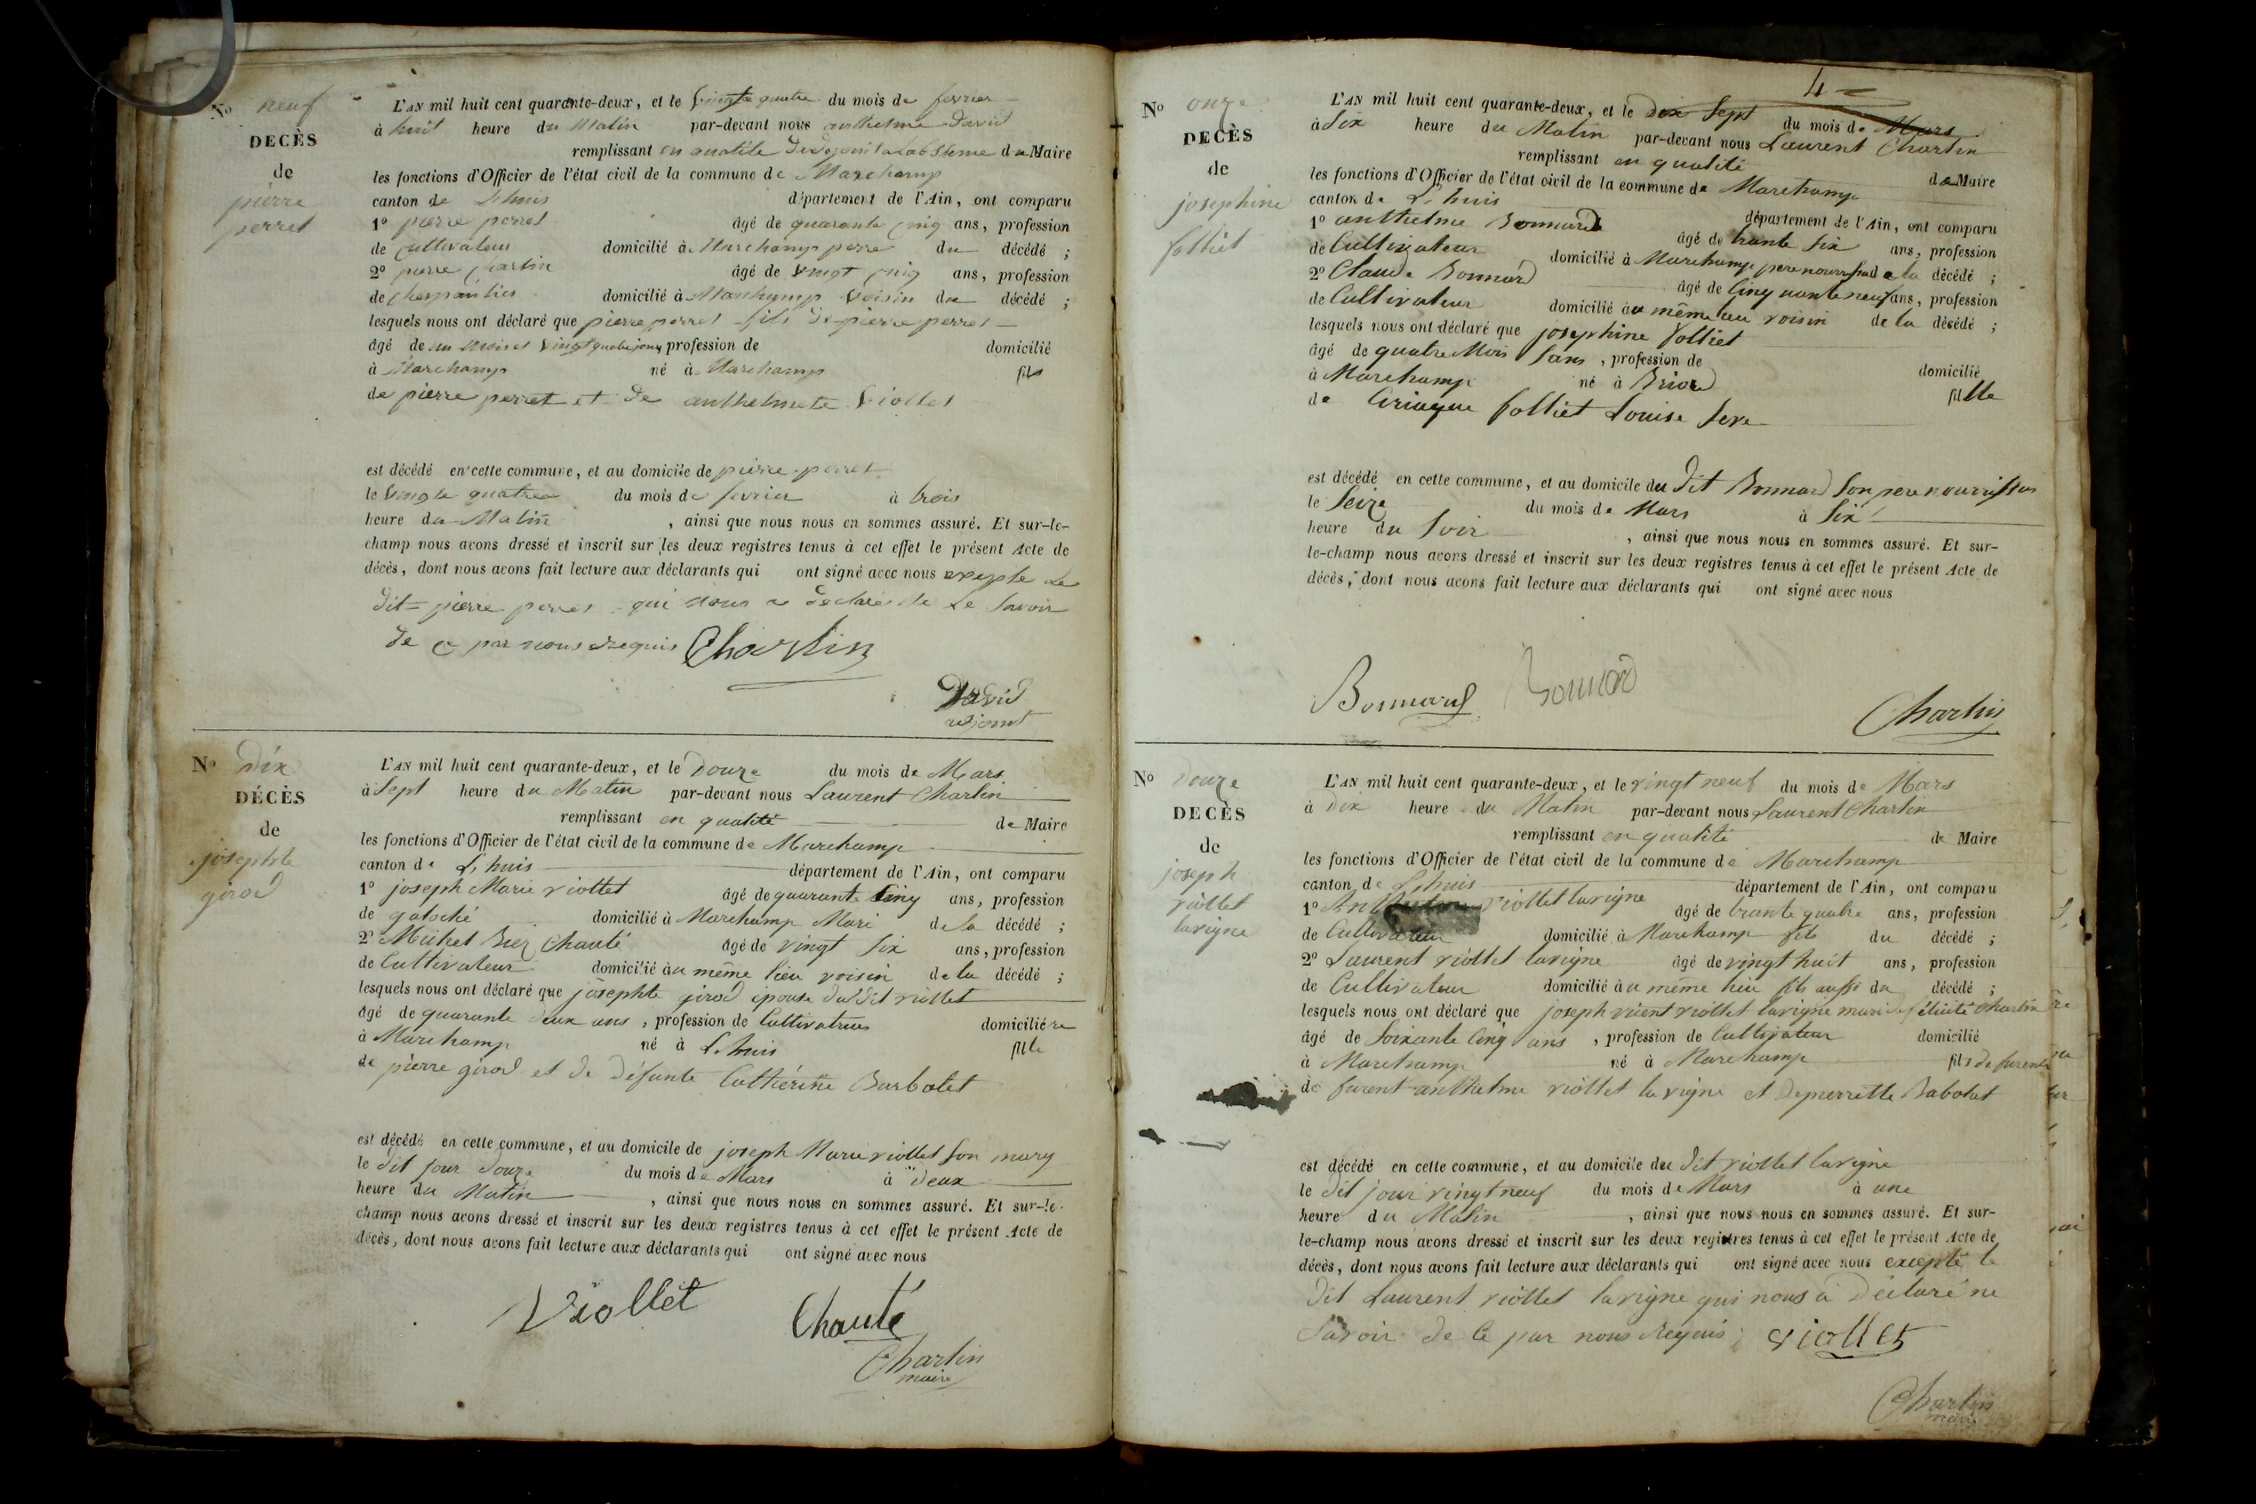 No neuf
DECÈS
de
pierre
perret
L'AN mil huit cent quarante-deux, et le vingte quatre du mois de fevrier
à huit heure du Matin par-devant nous anthelme David
remplissant en qualité d'adjoint a l'absteme du Maire
les fonctions d'Officier de l'état civil de la commune de Marchamp
canton de Lhuis département de l'Ain, ont comparu
1º pierre perret âgé de quarante cinq ans, profession
de Cultivateur domicilié à Marchamp perre du décédé ;
2º pierre Chartin âgé de vingt cinq ans, profession
de Charpantier domicilié à Marchamp voisin du décédé ;
lesquels nous ont déclaré que pierre perret fils de pierre perret
âgé de un mois et vingt quatre jours profession de domicilié
à Marchamp né à Marchamp fils
de pierre perret et de anthelmete Viollet
est décédé en cette commune, et au domicile de pierre perret
le vingte quatre du mois de fevrier à trois
heure du Matin , ainsi que nous nous en sommes assuré. Et sur-le-
champ nous avons dressé et inscrit sur les deux registres tenus à cet effet le présent Acte de
décès, dont nous avons fait lecture aux déclarants qui ont signé avec nous exepte Le
dit = pierre perret qui nous a declaré de Le savoir
de ce par nous requis Chartin
David
adjoint
No dix
DÉCÈS
de
josephte
girod
L'AN mil huit cent quarante-deux, et le Douze du mois de Mars
à Sept heure du Matin par-devant nous Laurent Chartin
remplissant en qualité de Maire
les fonctions d'Officier de l'état civil de la commune de Marchamp
canton de Lhuis département de l'Ain, ont comparu
1º joseph Marie viollet âgé de quarante Cinq ans, profession
de galoché domicilié à Marchamp Mari de la décédé ;
2º Michel Chauté âgé de vingt six ans, profession
de Cultivateur domicilié au même lieu voisin de la décédé ;
lesquels nous ont déclaré que josephte girod épouse du dit viollet
âgé de quarante deux ans , profession de Cultivatrice domiciliére
à Marchamp né à Lhuis fille
de pierre girod et de défunte Cathérine Barbolat
est décédé en cette commune, et au domicile de joseph Marie viollet son mary
le dit jour Douze du mois de Mars à deux
heure du Matin , ainsi que nous nous en sommes assuré. Et sur-le-
champ nous avons dressé et inscrit sur les deux registres tenus à cet effet le présent Acte de
décès, dont nous avons fait lecture aux déclarants qui ont signé avec nous
Viollet Chauté
Chartin
maire
4
No onze
DECÈS
de
josephine
folliet
L'AN mil huit cent quarante-deux, et le dix Sept du mois de Mars
à Six heure du Matin par-devant nous Laurent Chartin
remplissant en qualité de Maire
les fonctions d'Officier de l'état civil de la commune de Marchamp
canton de Lhuis département de l'Ain, ont comparu
1º anthelme Bonnard âgé de trante Six ans, profession
de Cultivateur domicilié à Marchamp pere nourrissad de la décédé ;
2º Claude Bonnard âgé de Cinq uante neuf ans, profession
de Cultivateur domicilié au même lieu voisin de la décédé ;
lesquels nous ont déclaré que josephine folliet
âgé de quatre Mois sans , profession de domicilié
à Marchamp né à Briord fille
de Ciriaque folliet Louise Seve
est décédé en cette commune, et au domicile du dit Bonnard Son pere nourrissur
le Seize du mois de Mars à Six
heure du Soir , ainsi que nous nous en sommes assuré. Et sur-
le-champ nous avons dressé et inscrit sur les deux registres tenus à cet effet le présent Acte de
décès, dont nous avons fait lecture aux déclarants qui ont signé avec nous
Bonnard Bonnard
Chartin
No Douze
DECÈS
de
joseph
viollet
lavigne
L'AN mil huit cent quarante-deux, et le vingt neuf du mois de Mars
à dix heure du Matin par-devant nous Laurent Chartin
remplissant en qualité de Maire
les fonctions d'Officier de l'état civil de la commune de Marchamp
canton de Lhuis département de l'Ain, ont comparu
1º viollet lavigne âgé de trante quatre ans, profession
de Cultivateur domicilié à Marchamp fils du décédé ;
2º Laurent viollet lavigne âgé de vingt huit ans, profession
de Cultivateur domicilié au même lieu fils aussi du décédé ;
lesquels nous ont déclaré que joseph viollet lavigne mari de félicité Chartin
âgé de Soixante Cinq ans , profession de Cultivateur domicilié
à Marchamp né à Marchamp fils de furent
de furent anthelme viollet lavigne et de pierrette Babolat
est décédé en cette commune, et au domicile du dit viollet lavigne
le dit jour vingt neuf du mois de Mars à une
heure du Matin , ainsi que nous nous en sommes assuré. Et sur-
le-champ nous avons dressé et inscrit sur les deux registres tenus à cet effet le présent Acte de
décès, dont nous avons fait lecture aux déclarants qui ont signé avec nous excepté le
dit Laurent viollet lavigne qui nous a déclaré ne
savoir de ce par nous Requis viollet
Chartin
maire